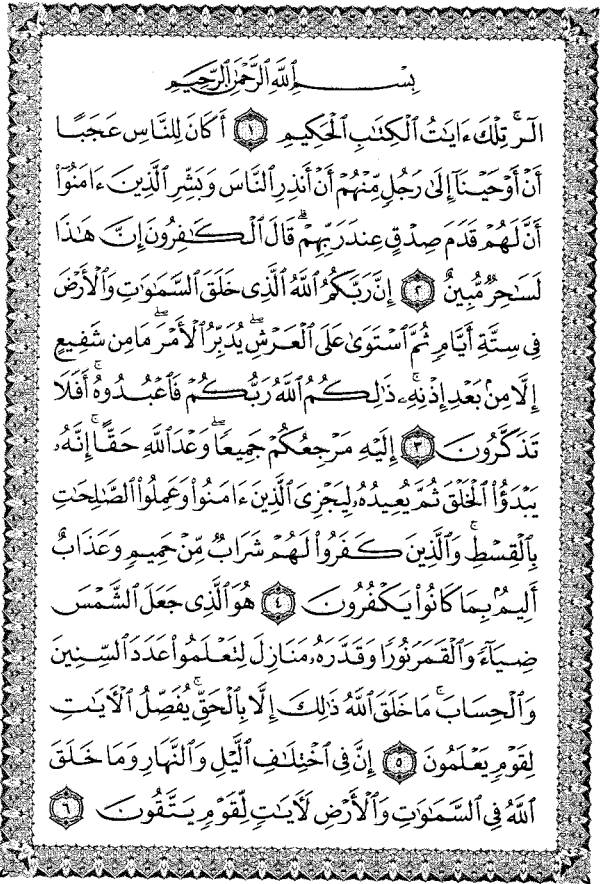 بِسْمِ ٱللَّهِ ٱلرَّحْمَٰنِ ٱلرَّحِيمِ
الٓر ۚ تِلْكَ ءَايَٰتُ ٱلْكِتَٰبِ ٱلْحَكِيمِ ١ أَكَانَ لِلنَّاسِ عَجَبًا
أَنْ أَوْحَيْنَآ إِلَىٰ رَجُلٍ مِّنْهُمْ أَنْ أَنذِرِ ٱلنَّاسَ وَبَشِّرِ ٱلَّذِينَ ءَامَنُوٓا۟
أَنَّ لَهُمْ قَدَمَ صِدْقٍ عِندَ رَبِّهِمْ ۗ قَالَ ٱلْكَٰفِرُونَ إِنَّ هَٰذَا
لَسَٰحِرٌ مُّبِينٌ ٢ إِنَّ رَبَّكُمُ ٱللَّهُ ٱلَّذِى خَلَقَ ٱلسَّمَٰوَٰتِ وَٱلْأَرْضَ
فِى سِتَّةِ أَيَّامٍ ثُمَّ ٱسْتَوَىٰ عَلَى ٱلْعَرْشِ ۖ يُدَبِّرُ ٱلْأَمْرَ ۖ مَا مِن شَفِيعٍ
إِلَّا مِنۢ بَعْدِ إِذْنِهِۦ ۚ ذَٰلِكُمُ ٱللَّهُ رَبُّكُمْ فَٱعْبُدُوهُ ۚ أَفَلَا
تَذَكَّرُونَ ٣ إِلَيْهِ مَرْجِعُكُمْ جَمِيعًا ۖ وَعْدَ ٱللَّهِ حَقًّا ۚ إِنَّهُۥ
يَبْدَؤُا۟ ٱلْخَلْقَ ثُمَّ يُعِيدُهُۥ لِيَجْزِىَ ٱلَّذِينَ ءَامَنُوا۟ وَعَمِلُوا۟ ٱلصَّٰلِحَٰتِ
بِٱلْقِسْطِ ۚ وَٱلَّذِينَ كَفَرُوا۟ لَهُمْ شَرَابٌ مِّنْ حَمِيمٍ وَعَذَابٌ
أَلِيمٌۢ بِمَا كَانُوا۟ يَكْفُرُونَ ٤ هُوَ ٱلَّذِى جَعَلَ ٱلشَّمْسَ
ضِيَآءً وَٱلْقَمَرَ نُورًا وَقَدَّرَهُۥ مَنَازِلَ لِتَعْلَمُوا۟ عَدَدَ ٱلسِّنِينَ
وَٱلْحِسَابَ ۚ مَا خَلَقَ ٱللَّهُ ذَٰلِكَ إِلَّا بِٱلْحَقِّ ۚ يُفَصِّلُ ٱلْءَايَٰتِ
لِقَوْمٍ يَعْلَمُونَ ٥ إِنَّ فِى ٱخْتِلَٰفِ ٱلَّيْلِ وَٱلنَّهَارِ وَمَا خَلَقَ
ٱللَّهُ فِى ٱلسَّمَٰوَٰتِ وَٱلْأَرْضِ لَءَايَٰتٍ لِّقَوْمٍ يَتَّقُونَ ٦